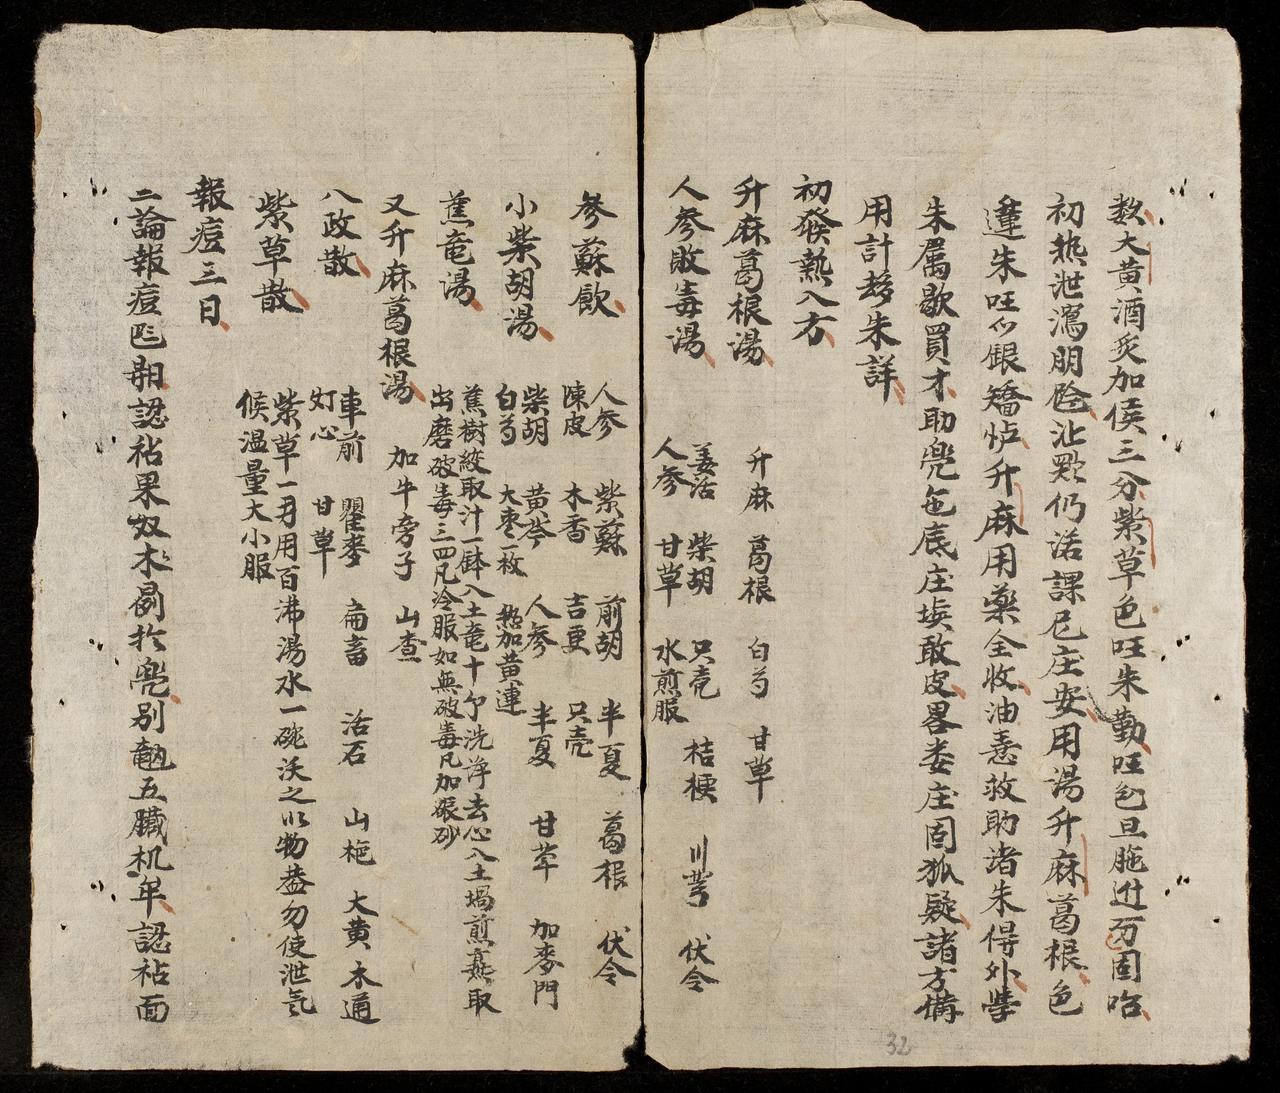 数大黄酒炙加侯三分紫草色旺朱勤旺色旦胣进固咍
初热泄瀉朋沚歎仍活課尼庄安用湯升麻葛根色
蓬朱旺銀矯怗升麻用藥全收油意救助諸朱得外孛
朱属歇買才助𠒥色底庄埃敢皮畧娄庄固狐疑諸方備
用計移朱詳
初發熱八方
升麻葛根湯 升麻 葛根 白芍 甘草
人參敗毒湯 姜活 柴胡 只壳 桔梗 川芎 伏令
人參 甘草 水煎服
參蘇飲 人參 紫蘇 前胡 半夏 葛根 伏令
陳皮 木香 吉更 只壳
小柴胡湯 柴胡 黄岑 人參 半夏 甘草 加麥門
白芍 大枣一枚 熱加黄連
蕉竜湯 蕉樹絞取汁一缽入土竜十个洗淨去心入土堝煎熹取
出磨破毒三四凡冷服如無破毒凡加硍砂
又升麻葛根湯 加牛旁子 山查
八政散 車前 瞿麥 扁畜 活石 山栀 大黄 木通
灯心 甘草
紫草散 紫草一用百沸湯水一碗沃之以物盖勿使泄氣
候温量大小服
報痘三日
二論報痘𠀧𣈜認祜果奴木扵𠒥别五臟机年認祜面